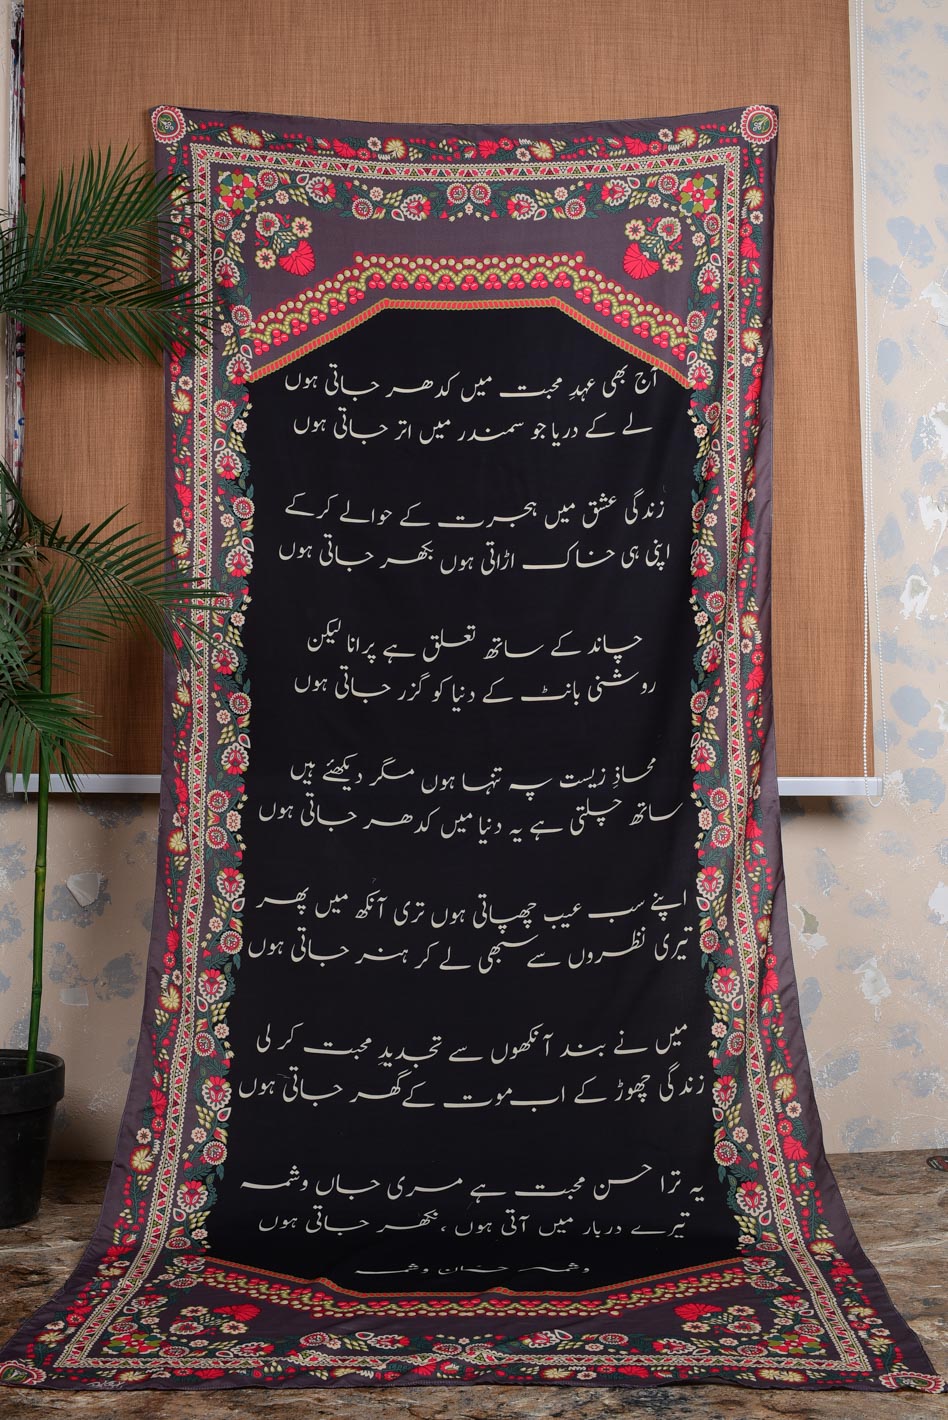 آج بھی عہدِ محبت میں کدھر جاتی ہوں
لے کے دریا جو سمندر میں اتر جاتی ہوں
زندگی عشق میں ہجرت کے حوالے کرکے
اپنی ہی خاک اڑاتی ہوں بکھر جاتی ہوں
چاند کے ساتھ تعلق ہے پرانا لیکن
روشنی بانٹ کے دنیا کو گزر جاتی ہوں
محاذِ زیست پہ تنہا ہوں مگر دیکھئے ہیں
ساتھ چلتی ہے یہ دنیا میں کدھر جاتی ہوں
اپنے سب عیب چھپاتی ہوں تری آنکھ میں پھر
تیری نظروں سے سبھی لے کر ہنر جاتی ہوں
میں نے بند آنکھوں سے تجدیدِ محبت کر لی
زندگی چھوڑ کے اب موت کے گھر جاتی ہوں
یہ ترا حسن محبت ہے مری جاں وشمہ
تیرے دربار میں آتی ہوں ، نکھر جاتی ہوں
وشمہ خان وشمہ